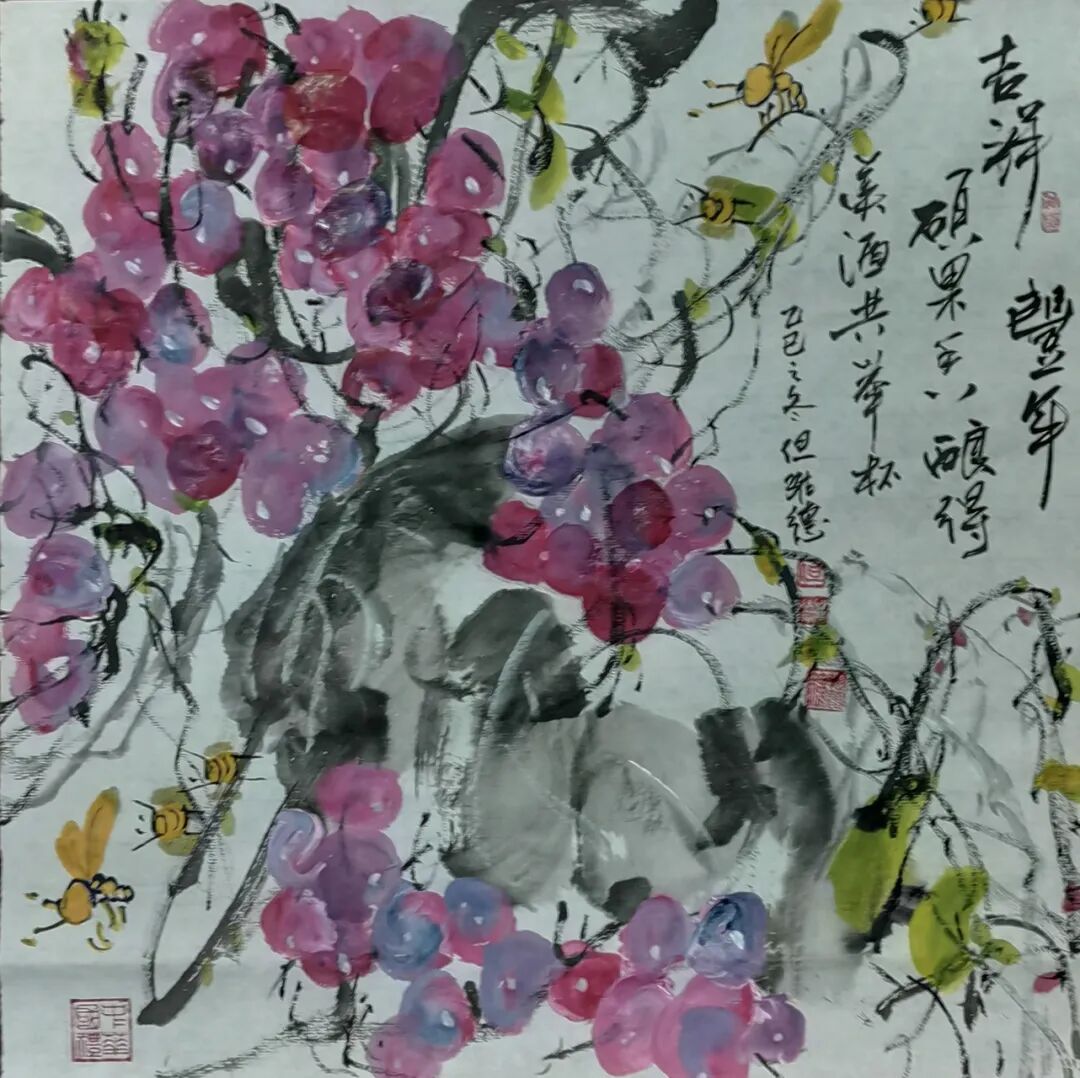 吉祥 豐年
硕果可以酿得
美酒共举杯
乙巳之冬但德